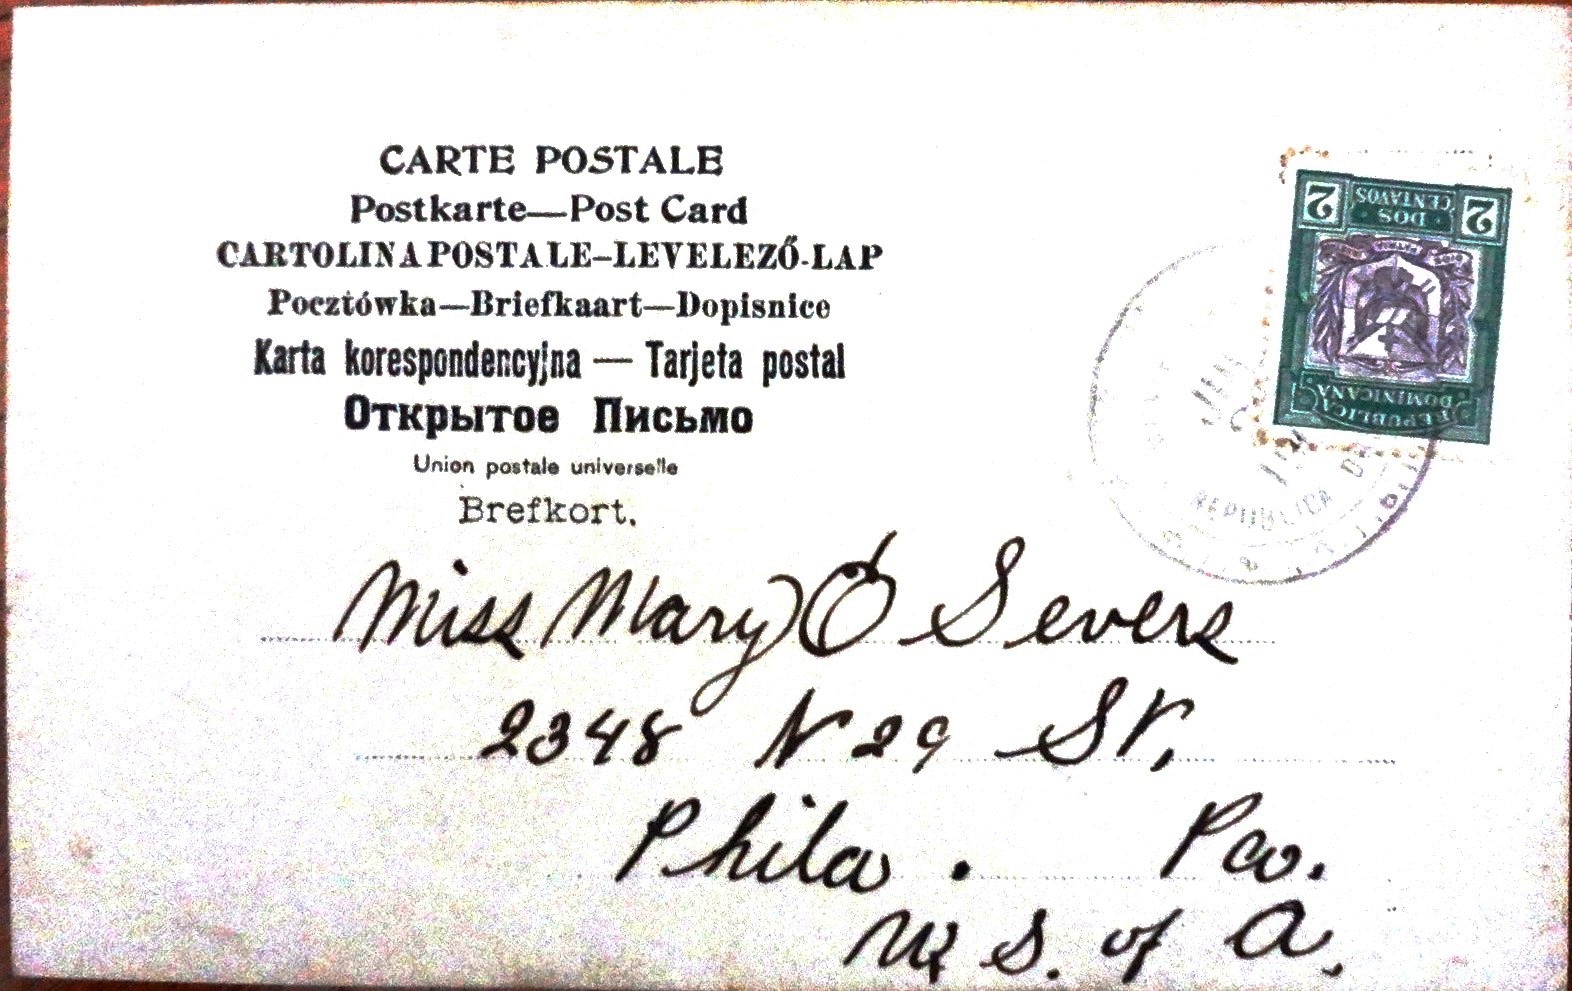 CARTE POSTALE
Postkarte—Post Card
CARTOLINA POSTALE–LEVELEZŐ-LAP
Pocztówka—Briefkaart—Dopisnice
Karta korespondencyjna — Tarjeta postal
Открытое Письмо
Union postale universelle
Brefkort.
2 DOS CENTAVOS 2
REPUBLICA DOMINICANA
REPUBLICA D
Miss Mary O Severs
2348 N 29 St,
Phila. Pa.
U. S. of A.